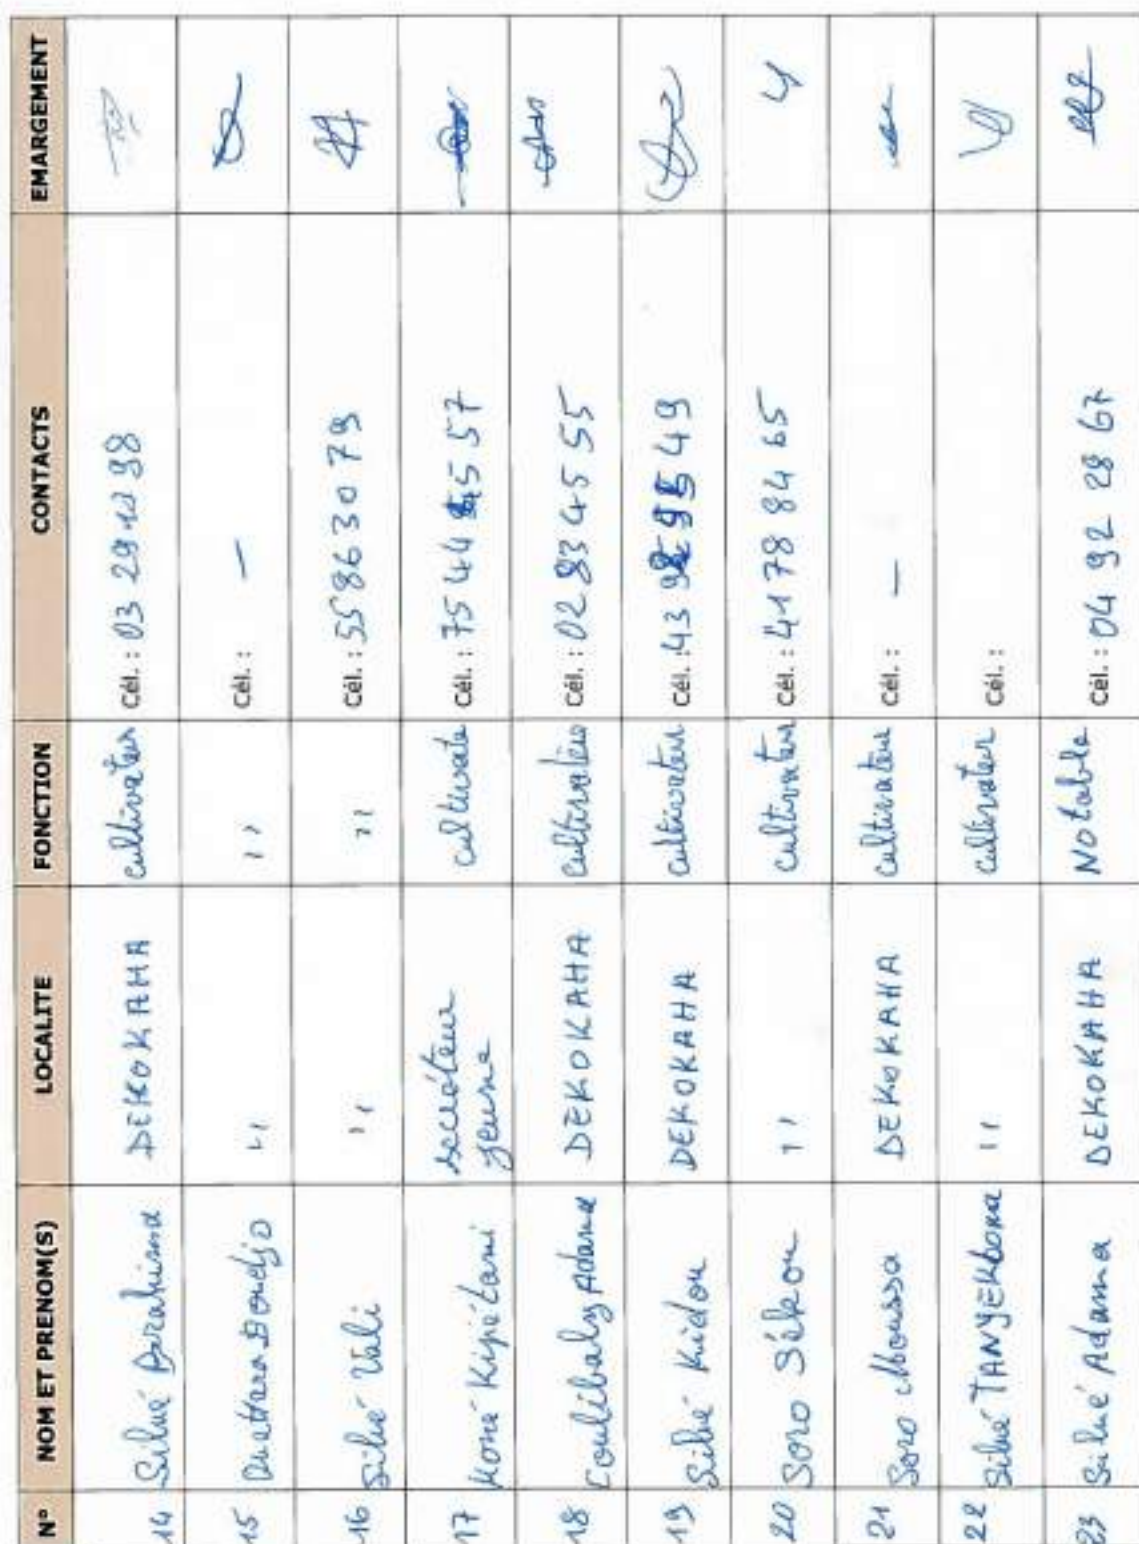 N° NOM ET PRENOM(S) LOCALITE FONCTION CONTACTS EMARGEMENT
14 Silué DEKOKAHA cultivateur Cél. : 03 29 10 98
15 Ouattara '' '' Cél. : —
16 Silué Vali '' '' Cél. : 55 86 30 79
17 Koné Kipétami secréteur jeune cultivate Cél. : 75 44 45 57
18 Coulibaly Adama DEKOKAHA cultivateur Cél. : 02 83 45 55
19 Silué Kidou DEKOKAHA cultivateur Cél. : 43 95 49
20 Soro Sékou '' cultivateur Cél. : 41 78 84 65
21 Soro Moussa DEKOKAHA cultivateur Cél. : —
22 Silué '' cultivateur Cél. :
23 Silué Adama DEKOKAHA Notable Cél. : 04 92 28 67